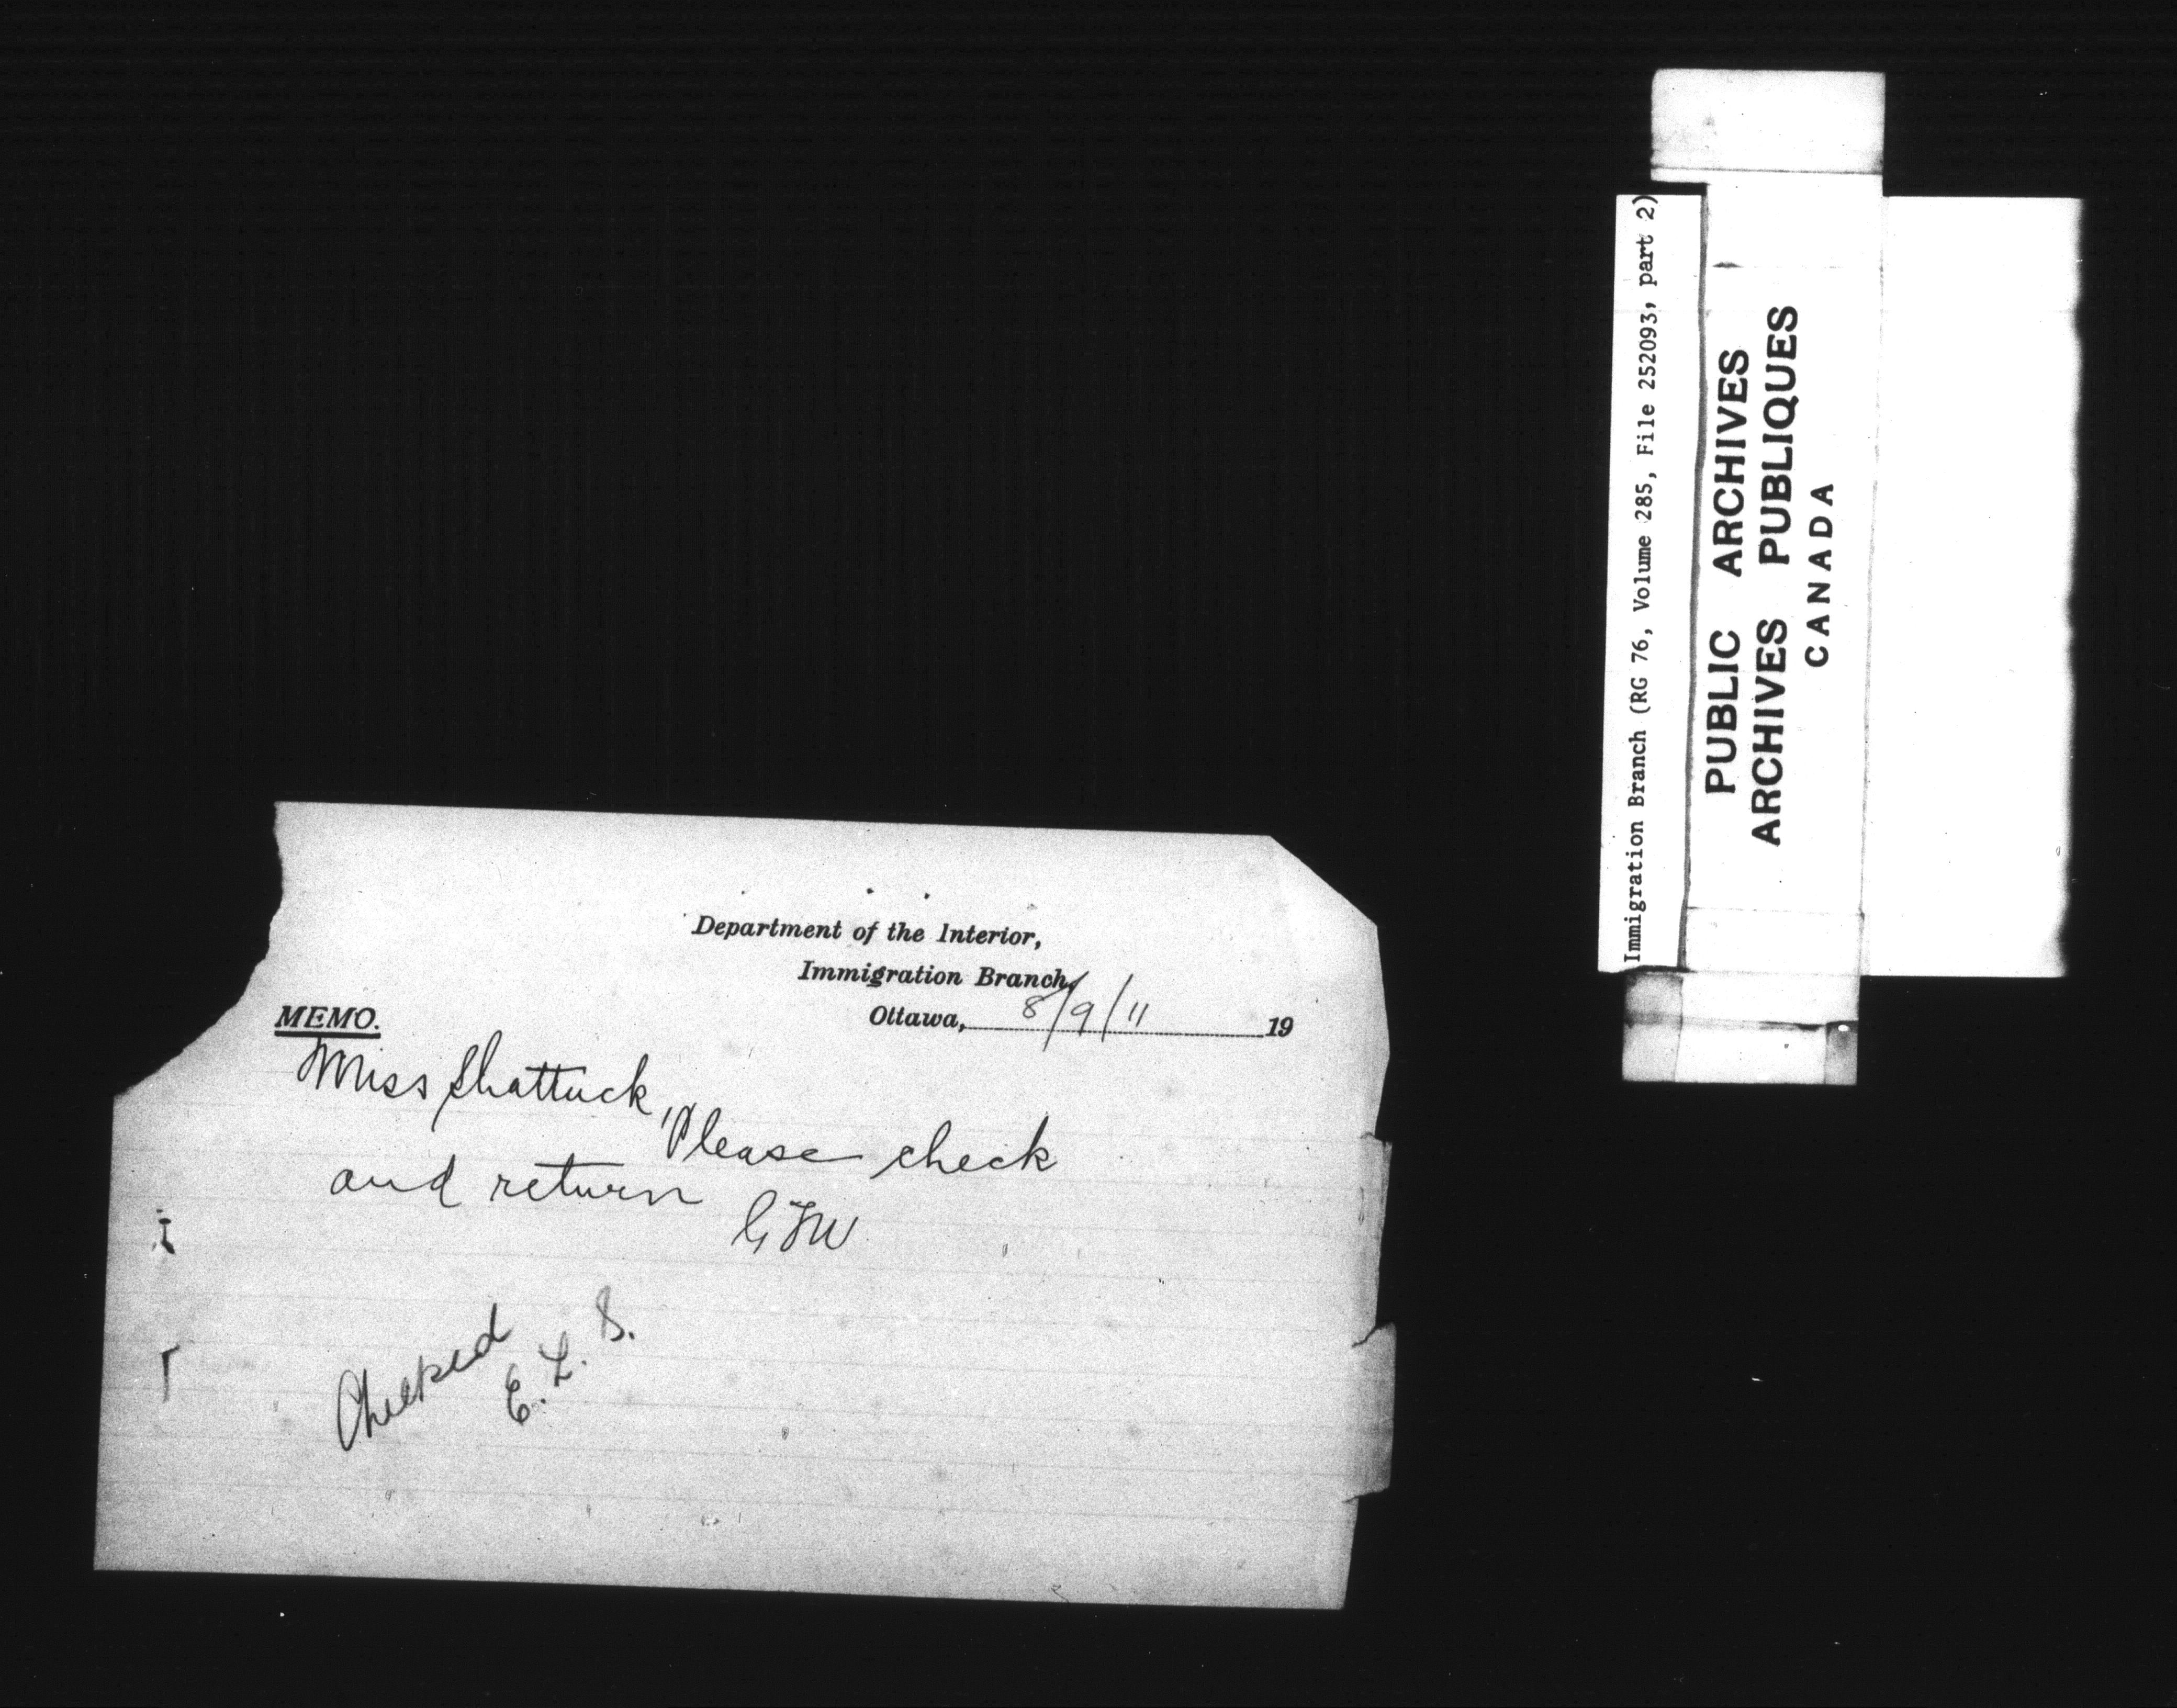 Department of the Interior,
Immigration Branch,
Ottawa, 8/9/11 19
MEMO.
Miss Shattuck,
Please check
and return
GFW
Checked
E. L. S.
Immigration Branch (RG 76, Volume 285, File 252093, part 2)
PUBLIC ARCHIVES
ARCHIVES PUBLIQUES
CANADA